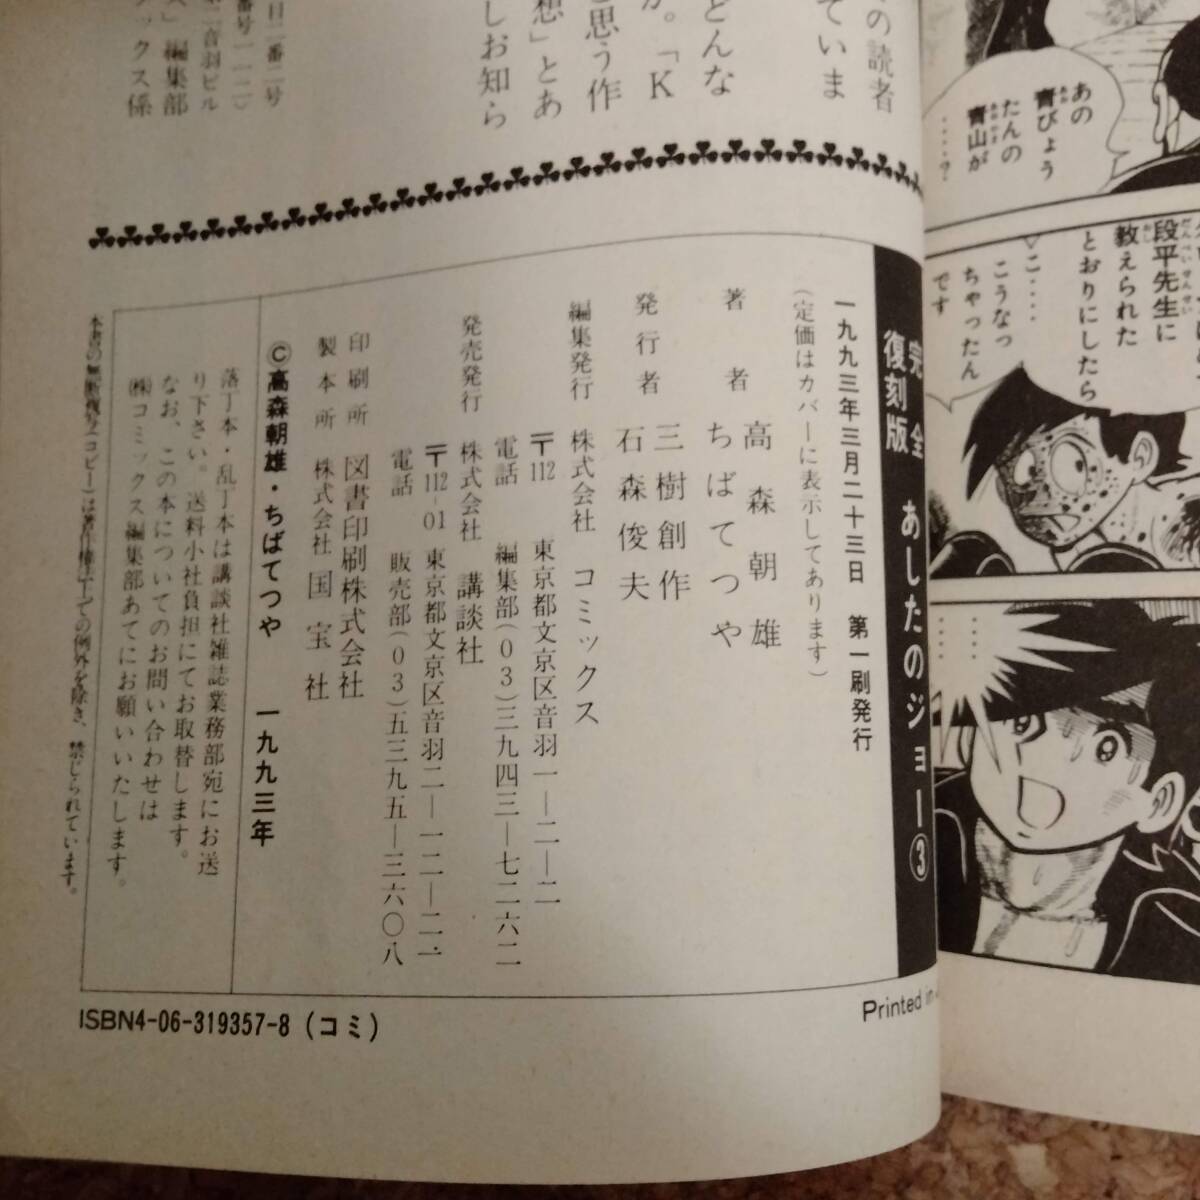 の読者
ていま
どんな
か。「K
と思う作
想」とあ
しお知ら
目二番二号
二音羽ビル
番号一一二)
」編集部
ックス係
完全
復刻版
あしたのジョー③
一九九三年三月二十三日 第一刷発行
(定価はカバーに表示してあります)
著者 高森朝雄
ちばてつや
発行者 三樹創作
石森俊夫
編集発行 株式会社 コミックス
〒112 東京都文京区音羽一―二―二
電話 編集部(03)三九四三―七二六二
発売発行 株式会社 講談社
〒112-01 東京都文京区音羽二―一二―二一
電話 販売部(03)五三九五―三六〇八
印刷所 図書印刷株式会社
製本所 株式会社 国宝社
©高森朝雄・ちばてつや 一九九三年
落丁本・乱丁本は講談社雑誌業務部宛にお送
り下さい。送料小社負担にてお取替します。
なお、この本についてのお問い合わせは
㈱コミックス編集部あてにお願いいたします。
本書の無断複写(コピー)は著作権法上での例外を除き、禁じられています。
ISBN4-06-319357-8(コミ)
Printed in
あの
青びょう
たんの
青山が
……?
段平先生に
教えられた
とおりにしたら
こ……
こうなっ
ちゃったん
です